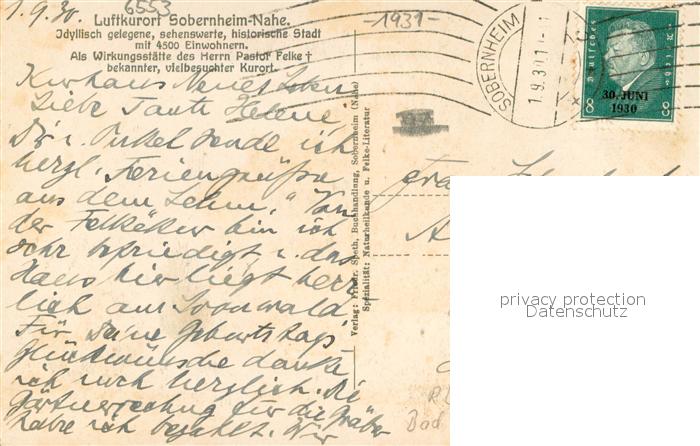 1.9.30.
6553
-1931-
Luftkurort Sobernheim-Nahe.
Idyllisch gelegene, sehenswerte, historische Stadt
mit 4500 Einwohnern.
Als Wirkungsstätte des Herrn Pastor Felke †
bekannter, vielbesuchter Kurort.
SOBERNHEIM
1.9.30.11-1
Deutsches Reich
8 8
30. JUNI
1930
Kurhaus Neues Leben
Liebe Tante Helene,
Dir u. Onkel sende ich
herzl. Feriengrüße
aus dem Lehm. Von
der Felkekur bin ich
sehr befriedigt, u. das
Haus hier liegt herr
lich am Soonwald.
Für Deine Geburtstags
glückwünsche danke
ich noch herzlich. Die
Gärtnerrechnung für die Gräber
habe ich bezahlt. Wir
Verlag: Friedr. Speth, Buchhandlung, Sobernheim (Nahe)
Spezialität: Naturheilkunde u. Felke-Literatur
Frau
Bad
privacy protection
Datenschutz